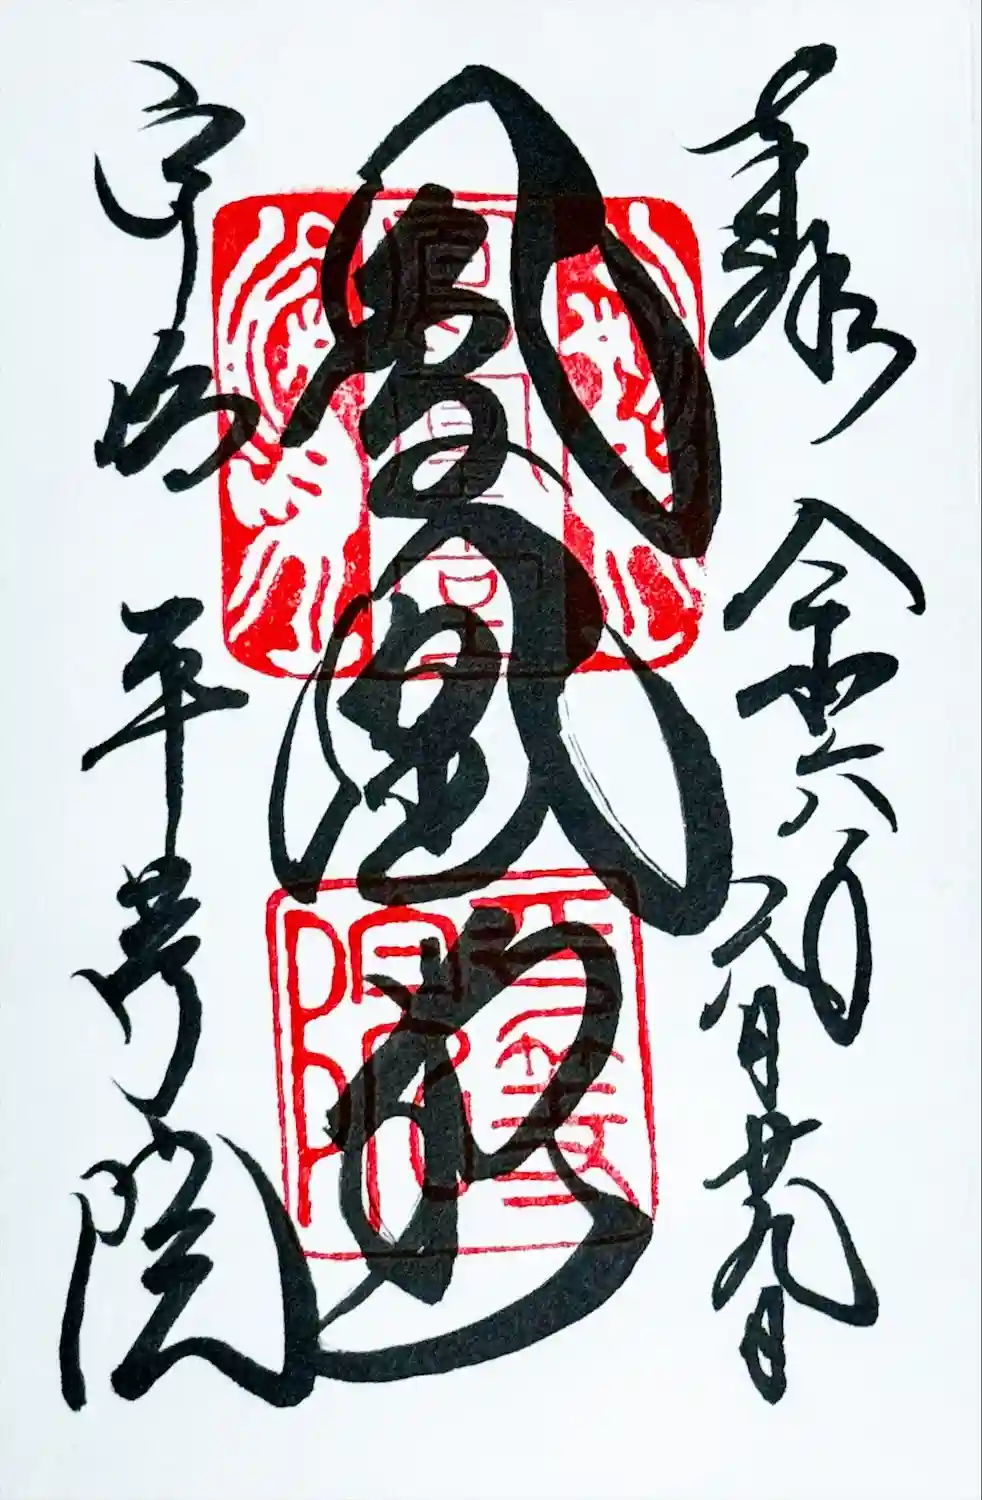 奉拝
令和六年六月廿九日
鳳凰堂
宇治
平等院
平等院